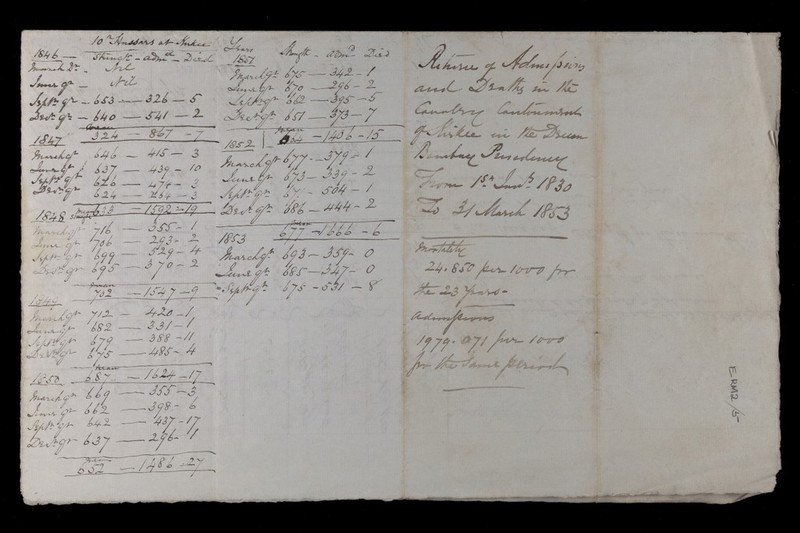 10th Hussars at Kirkee
1846 — Strength - Admd - Died
March Qr - Nil
June Qr - Nil
Septr Qr - 653 — 326 - 5
Decr Qr - 640 — 541 - 2
Mean 324 — 867 - 7
1847
March Qr 646 — 415 - 3
June Qr 637 — 439 - 10
Septr Qr 626 — 474 - 3
Decr Qr 624 — 264 - 3
1848 Mean 633 — 1592 - 19
March Qr 716 — 355 - 1
June Qr 706 — 293 - 2
Septr Qr 699 — 529 - 4
Decr Qr 695 — 370 - 2
Mean 702 — 1547 - 9
1849
March Qr 712 — 420 - 1
June Qr 682 — 331 - 1
Septr Qr 679 — 388 - 11
Decr Qr 675 — 485 - 4
Mean 687 — 1624 - 17
1850
March Qr 669 — 355 - 3
June Qr 662 — 398 - 6
Septr Qr 642 — 437 - 17
Decr Qr 637 — 296 - 1
Mean 652 — 1486 - 27
Years Strength - Admd - Died
1851
March Qr 675 — 342 - 1
June Qr 670 — 296 - 2
Septr Qr 662 — 395 - 5
Decr Qr 651 — 373 - 7
Mean — 1406 - 15
1852
March Qr 677 - 379 - 1
June Qr 673 - 339 - 2
Septr Qr - 504 - 1
Decr Qr 686 - 444 - 2
Mean 677 - 1666 - 6
1853
March Qr 693 - 359 - 0
June Qr 685 - 347 - 0
Septr Qr 675 - 531 - 8
Return of Admissions
and Deaths in the
Cavalry Cantonment
of Kirkee in the Deccan
Bombay Presidency
From 1st Jany. 1830
To 31 March 1853
Mortality
24.850 per 1000 for
the 23 years -
Admissions
1979.071 per 1000
for the same period
ERM2/5